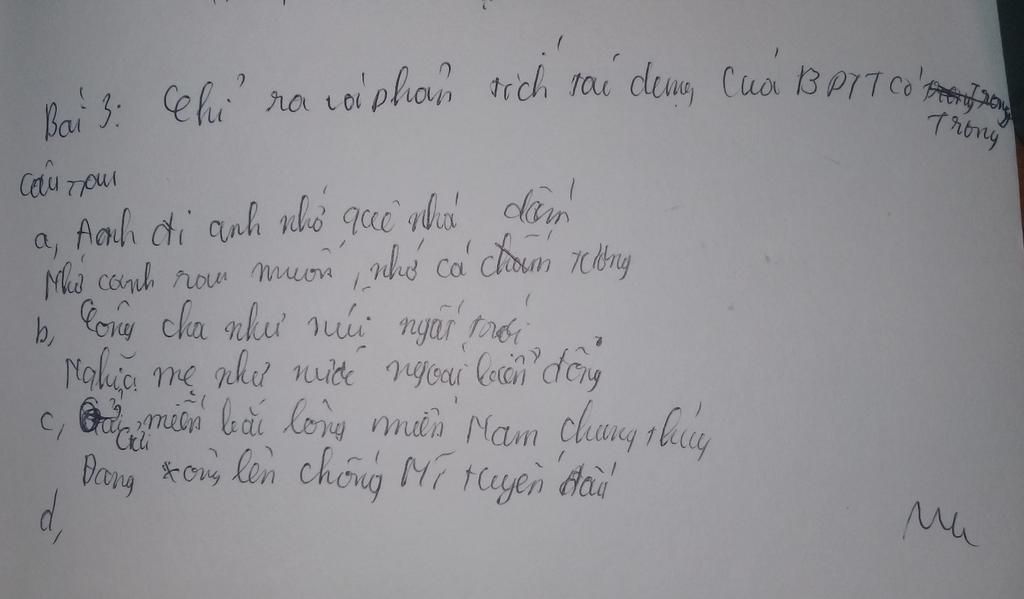 Bài 3: Chỉ ra với phân tích tác dụng của BPTT có
Trong
câu sau
a, Anh đi anh nhớ quê nhà
Nhớ canh rau muống, nhớ cà dầm tương
b, Công cha như núi ngất trời
Nghĩa mẹ như nước ngoài biển đông
c, Gửi miền bắc lòng miền Nam chung thủy
Đang xông lên chống Mĩ tuyến đầu
d,